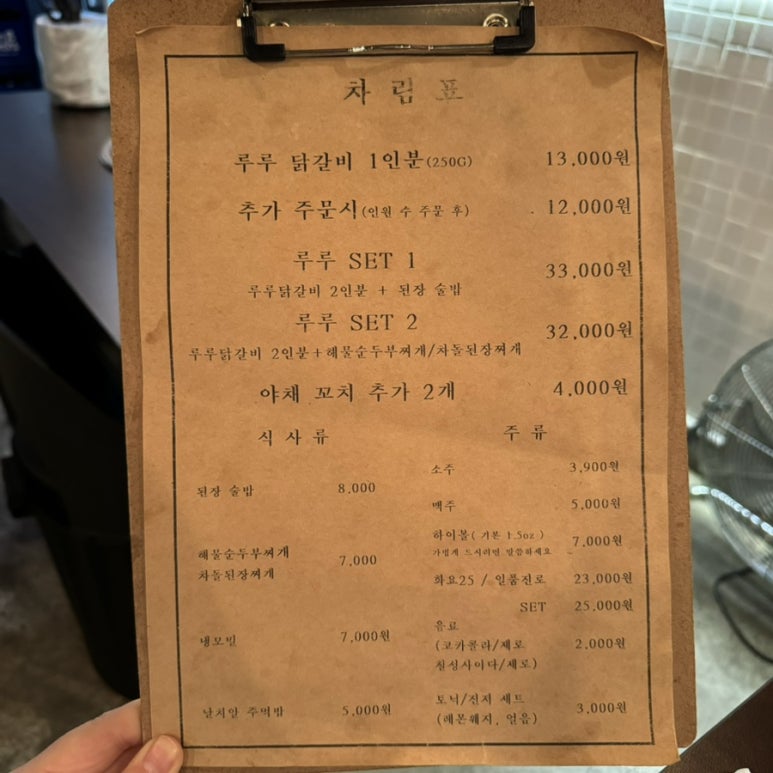 차림표
루루 닭갈비 1인분(250G) 13,000원
추가 주문시(인원 수 주문 후) 12,000원
루루 SET 1 33,000원
루루닭갈비 2인분 + 된장 술밥
루루 SET 2 32,000원
루루닭갈비 2인분+해물순두부찌개/차돌된장찌개
야채 꼬치 추가 2개 4,000원
식사류
된장 술밥 8,000
해물순두부찌개 7,000
차돌된장찌개
냉모밀 7,000원
날치알 주먹밥 5,000원
주류
소주 3,900원
맥주 5,000원
하이볼( 기본 1.5oz ) 7,000원
가볍게 드시려면 말씀하세요
화요25 / 일품진로 23,000원
SET 25,000원
음료
(코카콜라/제로 2,000원
칠성사이다/제로)
토닉/진저 세트 3,000원
(레몬웨지, 얼음)